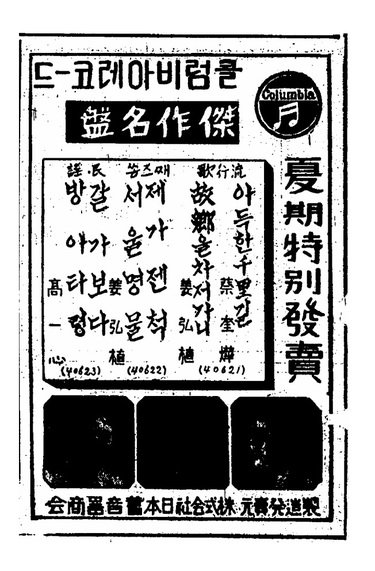 콜럼비아레코-드
傑作名盤
Columbia
夏期特別發賣
流行歌
아득한千里길
蔡奎燁
故鄕을차저가니
姜弘植
(40621)
째즈쏭
제가젠척
姜弘植
서울명물
(40622)
民謠
갈가보다
방아타령
高一心
(40623)
製造發賣元 株式会社日本蓄音器商会